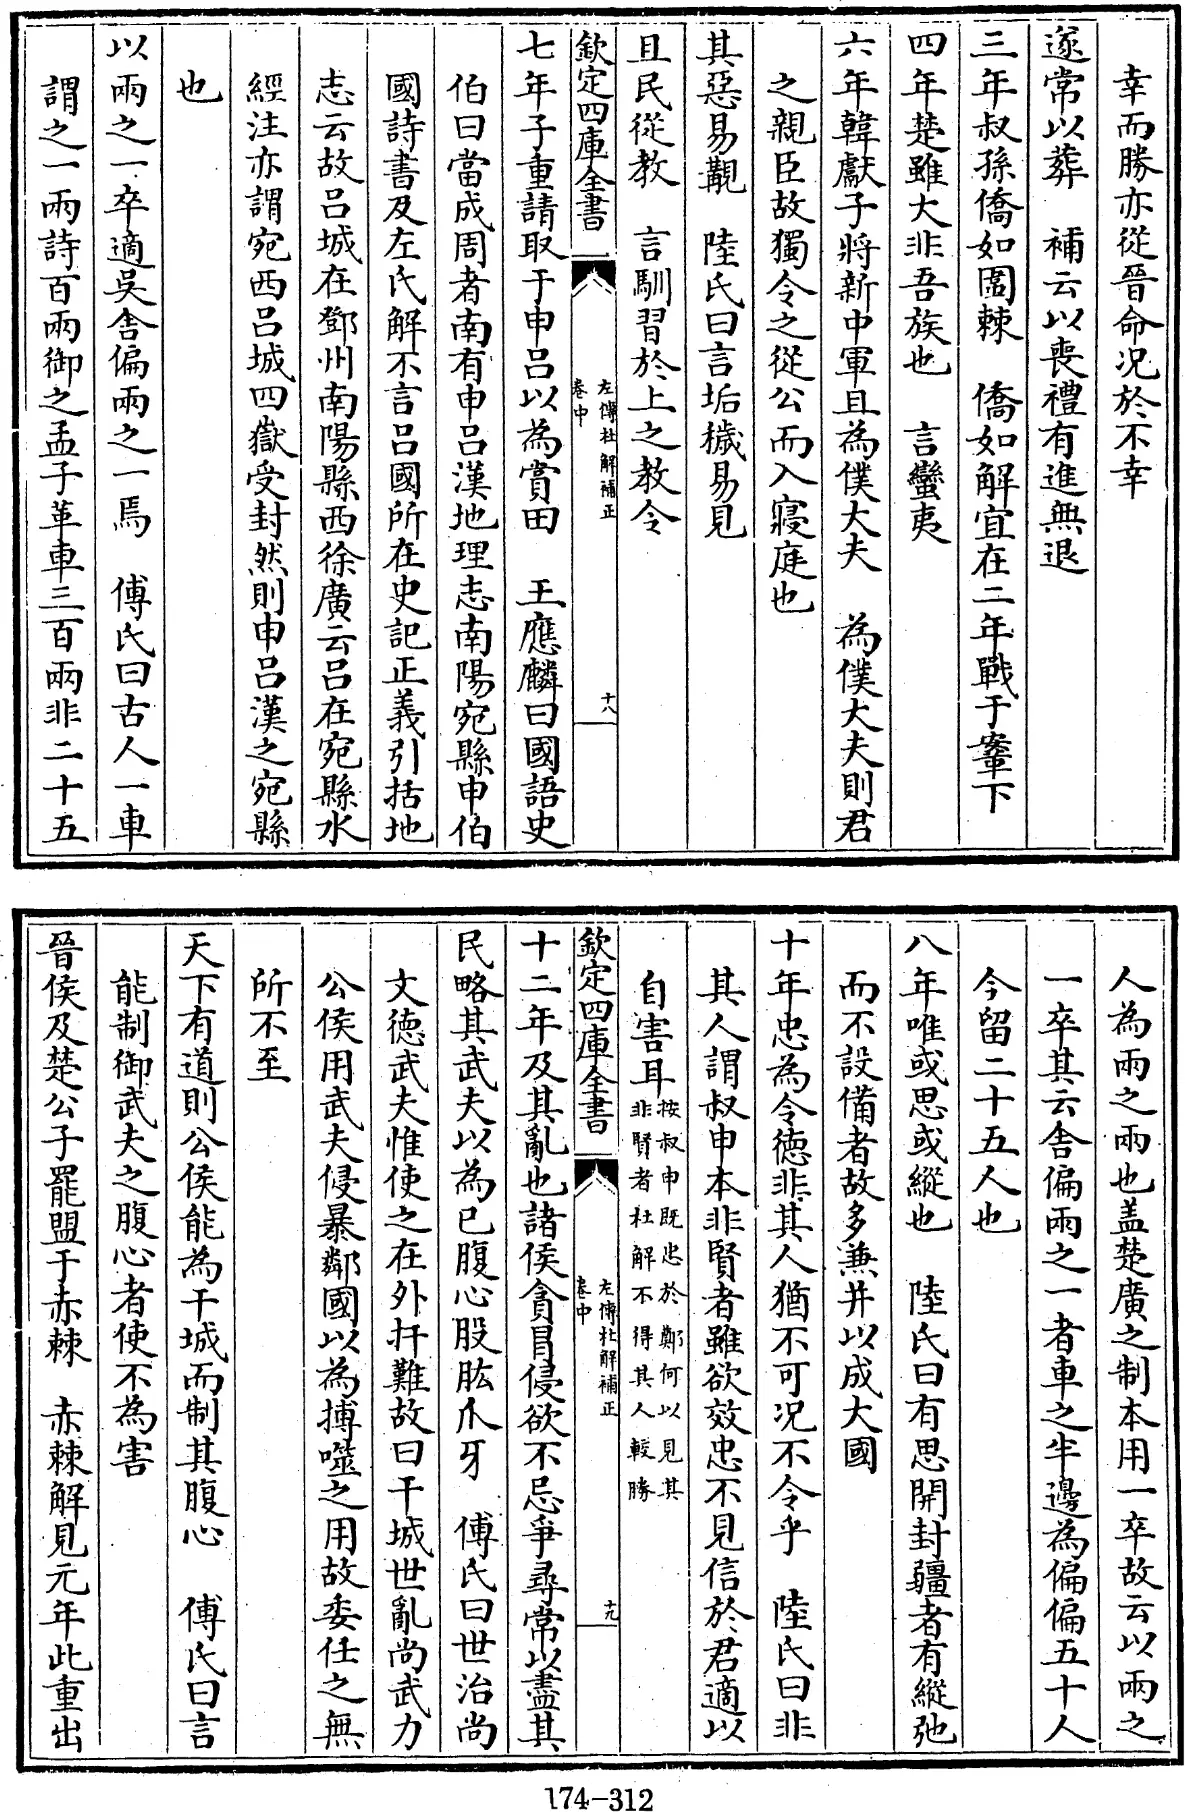 幸而勝亦從晉命况於不幸
遂常以葬　補云以喪禮有進無退
三年叔孫僑如圍棘　僑如解宜在二年戰于鞌下
四年楚雖大非吾族也　言蠻夷
六年韓獻子將新中軍且為僕大夫　為僕大夫則君
之親臣故獨令之從公而入寢庭也
其惡易覯　陸氏曰言垢穢易見
且民從教　言馴習於上之教令
欽定四庫全書
左傳杜解補正
卷中
十八
七年子重請取于申呂以為賞田　王應麟曰國語史
伯曰當成周者南有申呂漢地理志南陽宛縣申伯
國詩書及左氏解不言呂國所在史記正義引括地
志云故呂城在鄧州南陽縣西徐廣云呂在宛縣水
經注亦謂宛西呂城四嶽受封然則申呂漢之宛縣
也
以兩之一卒適吳舍偏兩之一焉　傅氏曰古人一車
謂之一兩詩百兩御之孟子革車三百兩非二十五
人為兩之兩也盖楚廣之制本用一卒故云以兩之
一卒其云舍偏兩之一者車之半邊為偏偏五十人
今留二十五人也
八年唯或思或縱也　陸氏曰有思開封疆者有縱弛
而不設備者故多兼并以成大國
十年忠為令德非其人猶不可况不令乎　陸氏曰非
其人謂叔申本非賢者雖欲效忠不見信於君適以
自害耳按叔申既忠於鄭何以見其
非賢者杜解不得其人較勝
欽定四庫全書
左傳杜解補正
卷中
十九
十二年及其亂也諸侯貪冒侵欲不忌爭尋常以盡其
民略其武夫以為已腹心股肱爪牙　傅氏曰世治尚
文德武夫惟使之在外扞難故曰干城世亂尚武力
公侯用武夫侵暴鄰國以為搏噬之用故委任之無
所不至
天下有道則公侯能為干城而制其腹心　傅氏曰言
能制御武夫之腹心者使不為害
晉侯及楚公子罷盟于赤棘　赤棘解見元年此重出
174-312